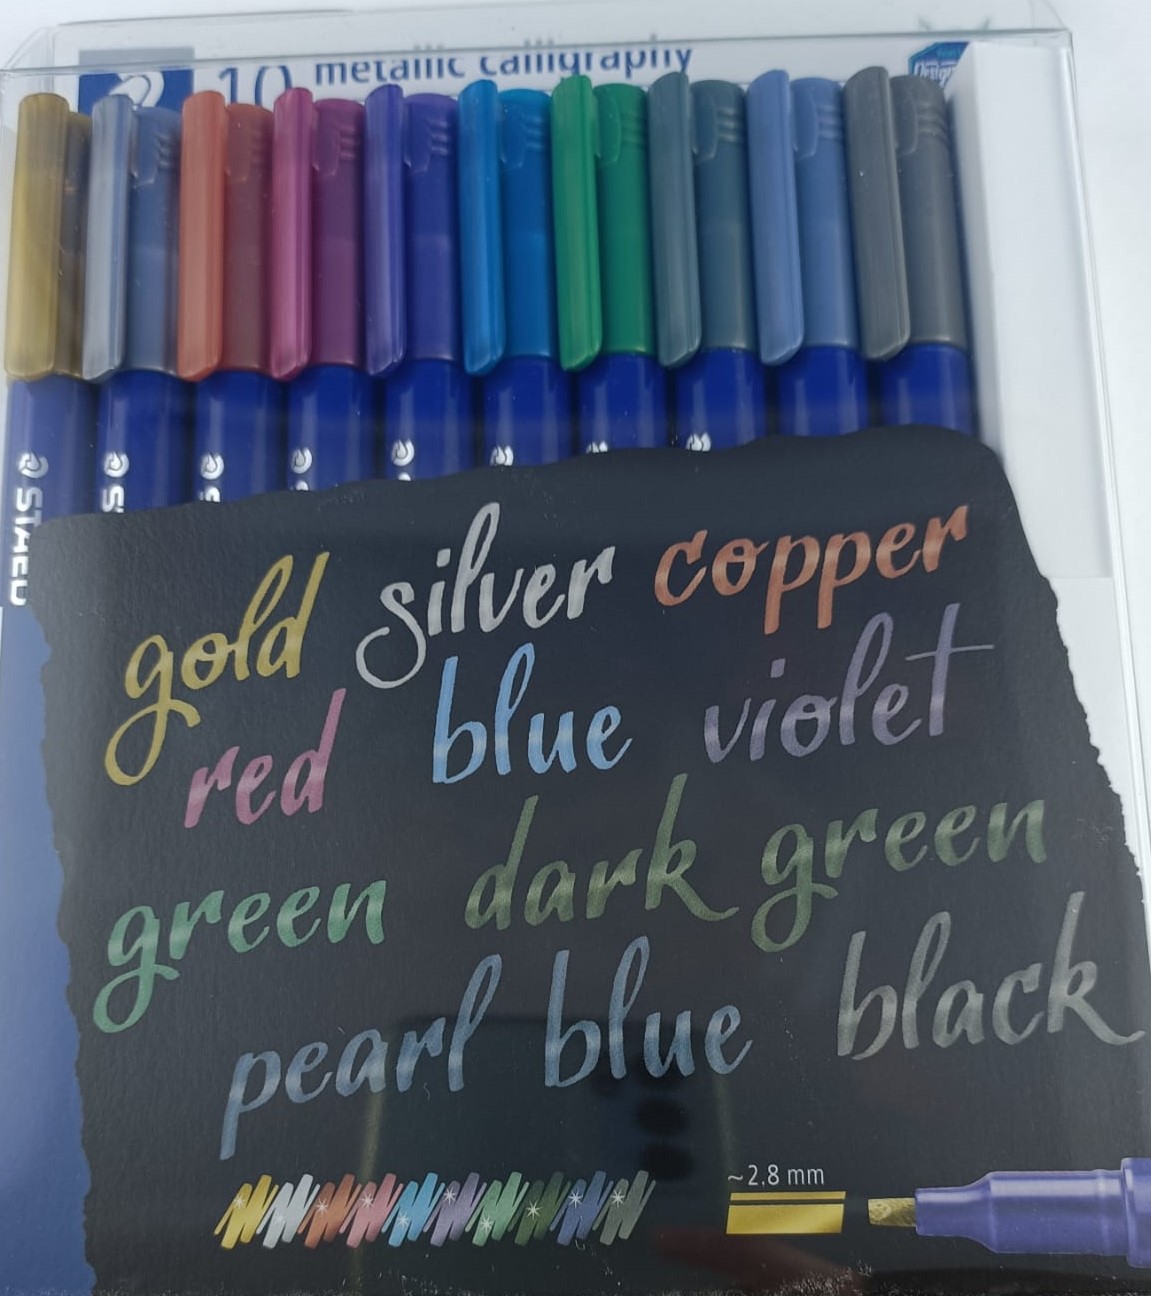 10 metallic calligraphy
gold silver copper
red blue violet
green dark green
pearl blue black
~2.8 mm